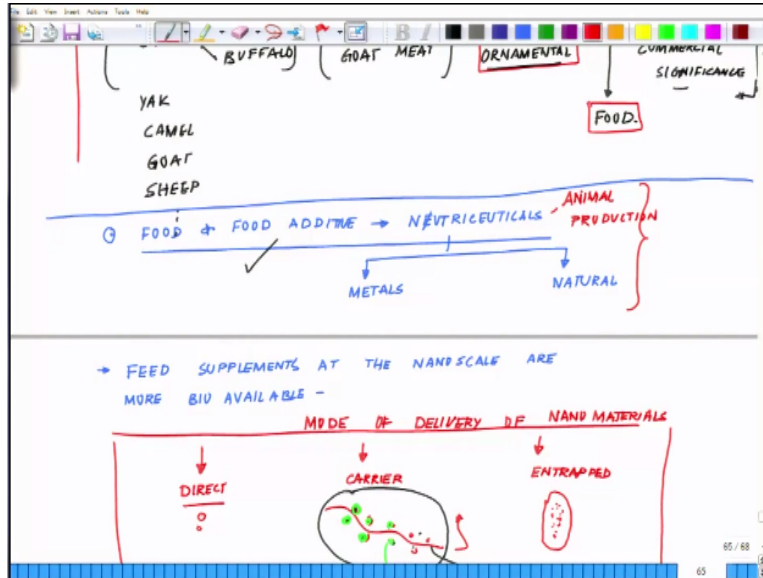 File Edit View Insert Actions Tools Help
B I
BUFFALO
GOAT MEAT
ORNAMENTAL
COMMERCIAL
SIGNIFICANCE
FOOD.
YAK
CAMEL
GOAT
SHEEP
① FOOD & FOOD ADDITIVE → NEUTRICEUTICALS - ANIMAL
PRODUCTION
METALS
NATURAL
→ FEED SUPPLEMENTS AT THE NANOSCALE ARE
MORE BIO AVAILABLE -
MODE OF DELIVERY OF NANO MATERIALS
DIRECT
CARRIER
ENTRAPPED
65 / 68
65